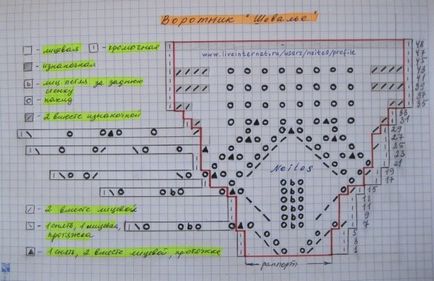 Воротник "Шевалье"
- лицевая - кромочная
- изнаночная
- лиц. петля за заднюю
стенку
- накид
- 2 вместе изнаночной
Neilos
47
45
43
41
39
37
35
33
31
29
27
25
23
21
19
17
15
13
11
9
7
5
3
1
- 2 вместе лицевой
- 1 снять, 1 лицевая,
протяжка
- 1 снять, 2 вместе лицевой, протяжка
раппорт